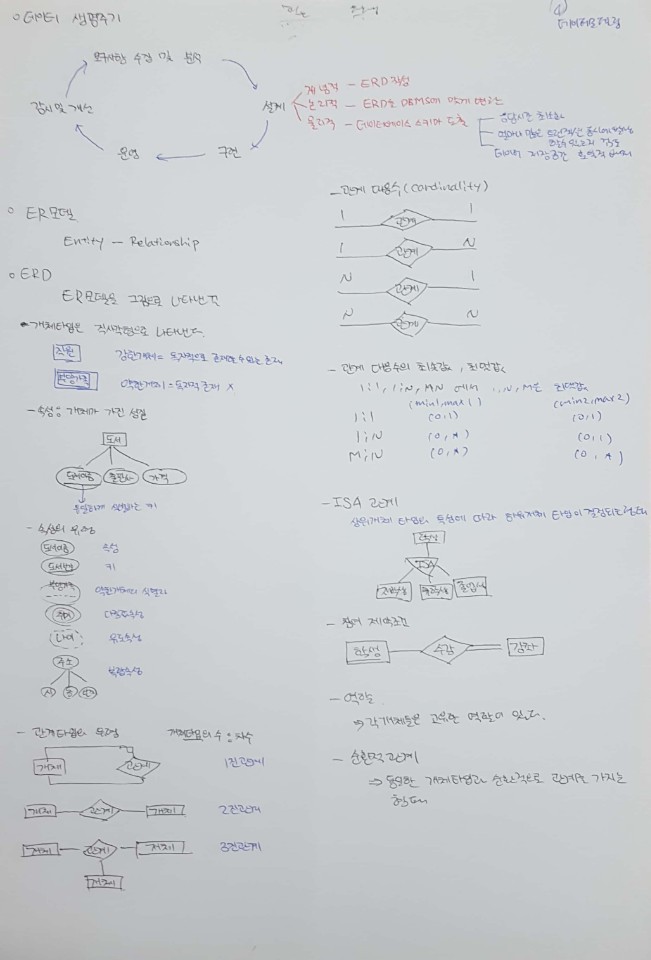 ④
데이터모델링
○ 데이터 생명주기
요구사항 수집 및 분석
설계
구현
운영
감시 및 개선
개념적 - ERD 작성
논리적 - ERD를 DBMS에 맞게 변환
물리적 - 데이터베이스 스키마 도출
응답시간 최소화
얼마나 많은 트랜잭션 동시에
데이터 저장공간 효율적 배치
○ ER모델
Entity - Relationship
○ ERD
ER모델을 그림으로 나타낸 것
개체타입은 직사각형으로 나타낸다.
직원
강한개체 = 독자적으로 존재할 수 있는 존재
부양가족
약한개체 = 독자적 존재 X
- 속성: 개체가 가진 성질
도서
도서이름
출판사
가격
유일하게 식별하는 키
- 속성의 유형
도서이름
속성
키
약한개체의 식별자
취미
다중값속성
나이
유도속성
주소
복합속성
시
동
번지
- 관계타입의 유형
개체타입의 수 : 차수
개체
관계
1진관계
개체
관계
개체
2진관계
개체
관계
개체
3진관계
개체
- 관계 대응수 (cardinality)
1
관계
1
1
관계
N
N
관계
1
N
관계
N
- 관계 대응수의 최솟값, 최댓값
1:1, 1:N, M:N 에서 1, N, M은 최댓값
(min1, max1)
(min2, max2)
1:1
(0,1)
(0,1)
1:N
(0,*)
(0,1)
M:N
(0,*)
(0,*)
- ISA 관계
상위개체 타입의 특성에 따라 하위개체 타입이 결정되는 형태
학생
ISA
재학생
휴학생
졸업생
- 참여 제약조건
학생
수강
강좌
- 역할
⇒ 각 개체들은 고유한 역할이 있다.
- 순환적 관계
⇒ 동일한 개체타입과 순환적으로 관계를 가지는
형태